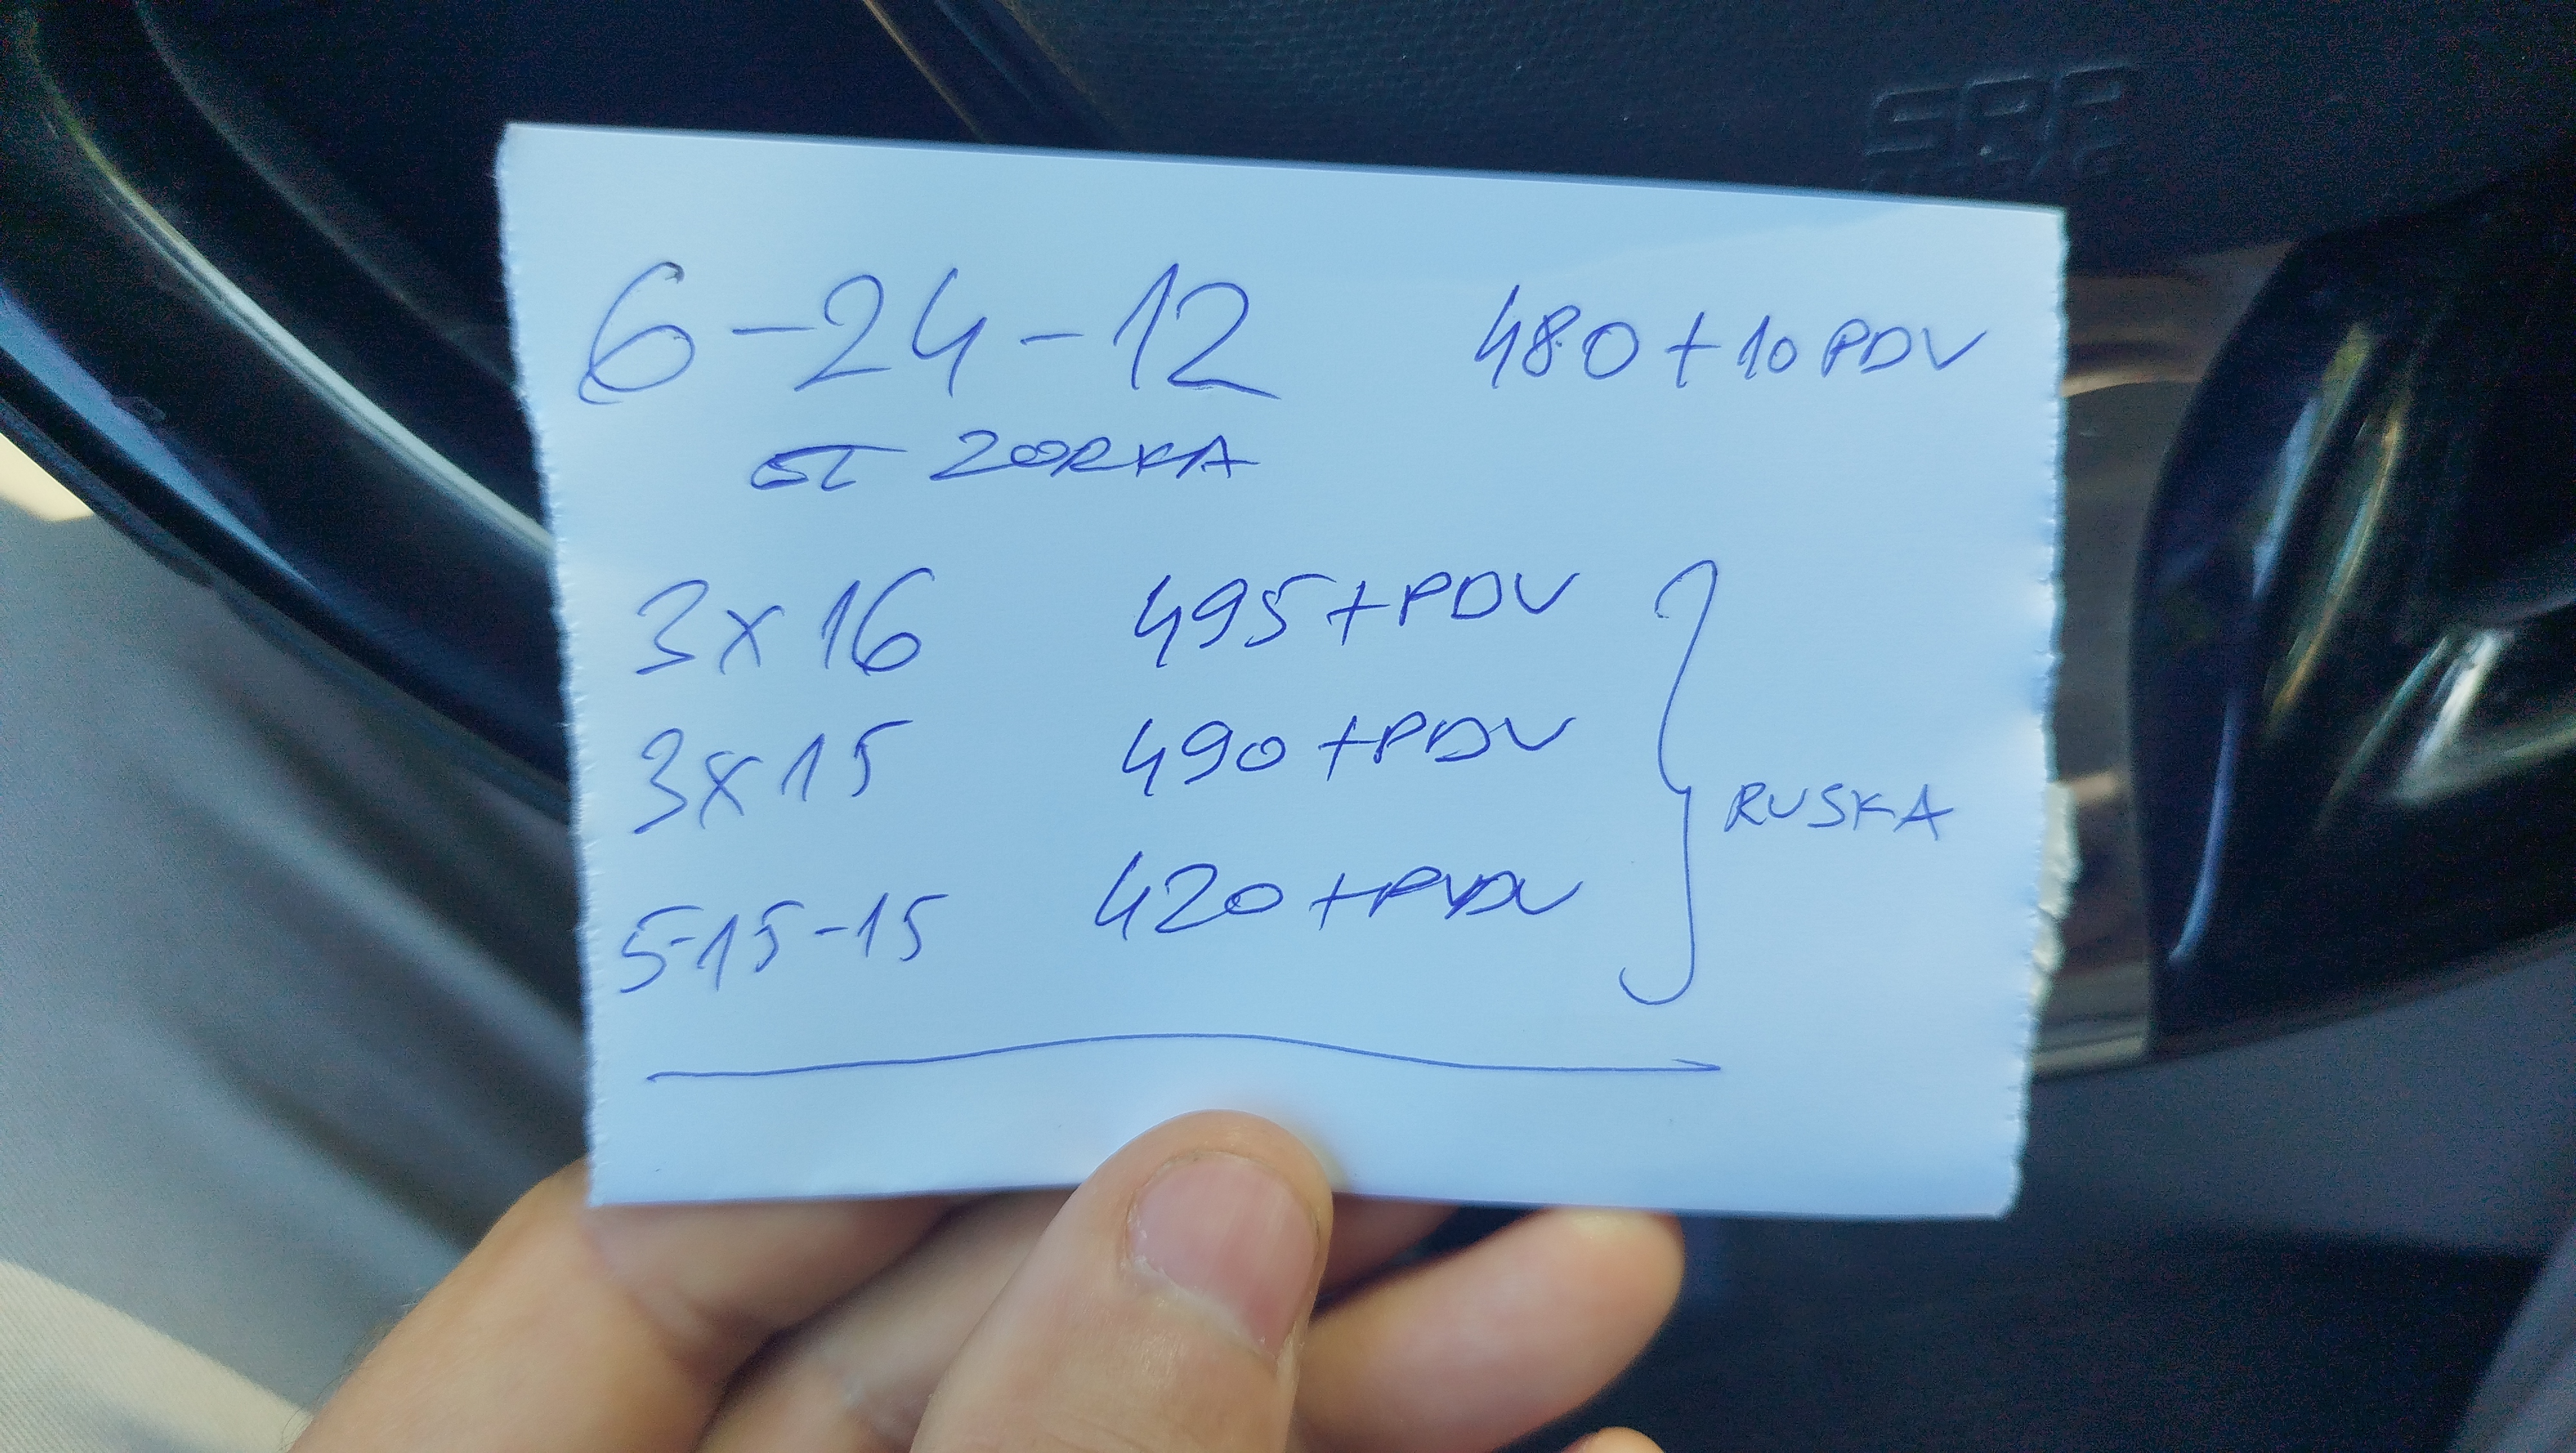 6-24-12 480+10 PDV
ZORKA
3x16 495+PDV
3x15 490+PDV
RUSKA
5-15-15 420+PDV
SRS